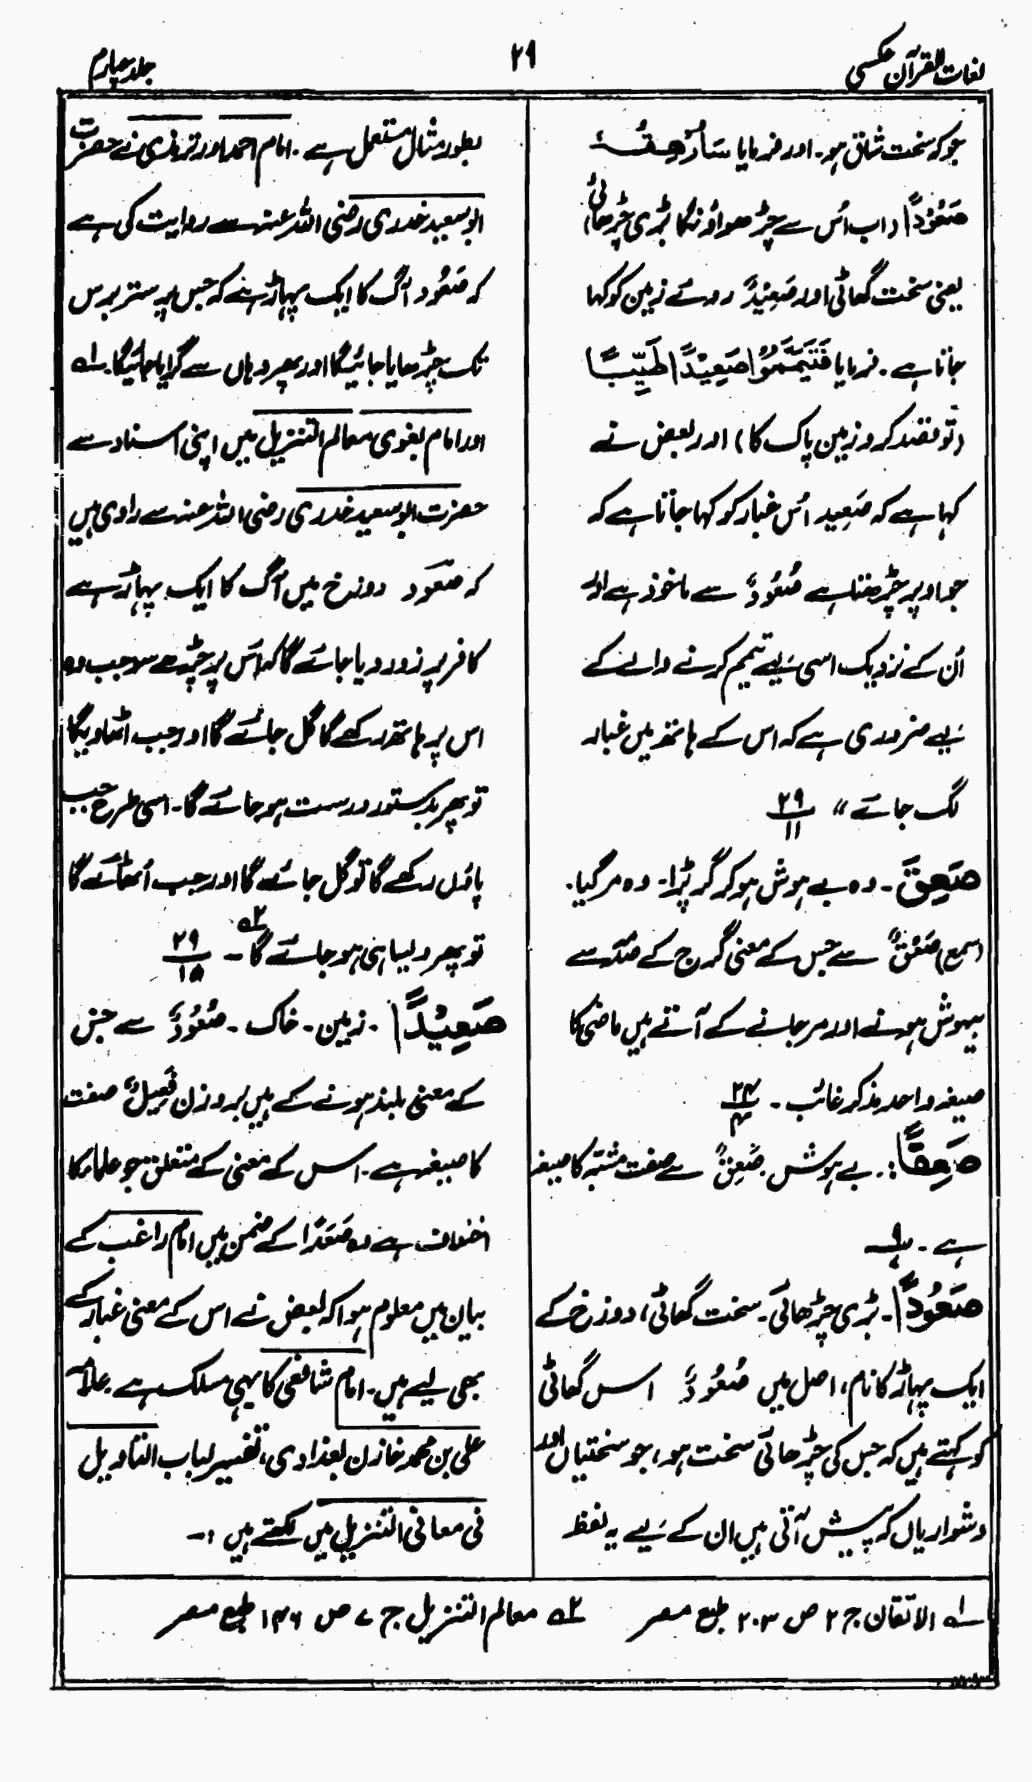 لغات القرآن عکسی
۲۹
جلد چہارم
جو کہ سخت شاق ہو۔ اور فرمایا سَأُرْهِقُهٗ
صَعُوْدًا (اب اُس سے چڑھواؤنگا بڑی چڑھائی)
یعنی سخت گھاٹی اور صَعِیْدٌ روئے زمین کو کہا
جاتا ہے۔ فرمایا فَتَيَمَّمُوْا صَعِيْدًا طَيِّبًا
(تو قصد کرو زمین پاک کا) اور بعض نے
کہا ہے کہ صَعِید اُس غبار کو کہا جاتا ہے کہ
جو اوپر چڑھتا ہے صُعُوْدٌ سے ماخوذ ہے اور
اُن کے نزدیک اسی لیے تیمم کرنے والے کے
لیے ضروری ہے کہ اس کے ہاتھ میں غبار
لگ جائے" ۲۹/۱۱
صَعِقَ۔ وہ بے ہوش ہو کر گر پڑا۔ وہ مر گیا۔
(سمع) صَعْقٌ سے جس کے معنی گرج کے صدمے سے
بیہوش ہونے اور مر جانے کے آتے ہیں ماضی کا
صیغہ واحد مذکر غائب۔ ۲۴/۴
صَعِقًا :۔ بے ہوش۔ صَعِقٌ سے صفت مشبہ کا صیغہ
ہے۔ ۹
صَعُوْدًا۔ بڑی چڑھائی۔ سخت گھاٹی، دوزخ کے
ایک پہاڑ کا نام، اصل میں صُعُوْدٌ اس گھاٹی
کو کہتے ہیں کہ جس کی چڑھائی سخت ہو، جو سختیاں اور
دشواریاں کہ پیش آتی ہیں ان کے لیے یہ لفظ
بطور مثال مستعمل ہے۔ امام احمد اور ترمذی نے حضرت
ابو سعید خدری رضی اللہ عنہ سے روایت کی ہے
کہ صَعُود آگ کا ایک پہاڑ ہے کہ جس پر ستر برس
تک چڑھایا جائیگا اور پھر وہاں سے گرایا جائیگا۔ لہ
اور امام بغوی معالم التنزیل میں اپنی اسناد سے
حضرت ابو سعید خدری رضی اللہ عنہ سے راوی ہیں
کہ صَعُود دوزخ میں آگ کا ایک پہاڑ ہے
کافر پر زور دیا جائے گا کہ اس پر چڑھے سو جب وہ
اس پر ہاتھ رکھے گا گل جائے گا اور جب اٹھاویگا
تو پھر بدستور درست ہو جائے گا۔ اسی طرح جب
پاؤں رکھے گا تو گل جائے گا اور جب اُٹھائے گا
تو پھر ویسا ہی ہو جائے گا ۲ہ ۔ ۲۹/۱۵
صَعِیْدًا۔ زمین۔ خاک۔ صُعُوْدٌ سے جس
کے معنی بلند ہونے کے ہیں بروزن فَعِیْلٌ صفت
کا صیغہ ہے۔ اس کے معنی کے متعلق جو علماء کا
اختلاف ہے وہ صَعَدًا کے ضمن میں امام راغب کے
بیان میں معلوم ہوا کہ بعض نے اس کے معنی غبار کے
بھی لیے ہیں۔ امام شافعی کا یہی مسلک ہے۔ علامہ
علی بن محمد خازن بغدادی، تفسیر لباب التاویل
فی معانی التنزیل میں لکھتے ہیں :۔
۱ہ الاتقان ج ۲ ص ۲۰۳ طبع مصر
۲ہ معالم التنزیل ج ۷ ص ۱۴۶ طبع مصر